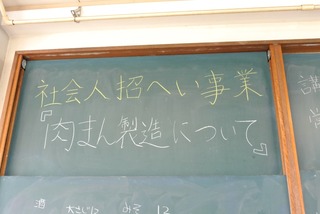 社会人招へい事業
『肉まん製造について』
講